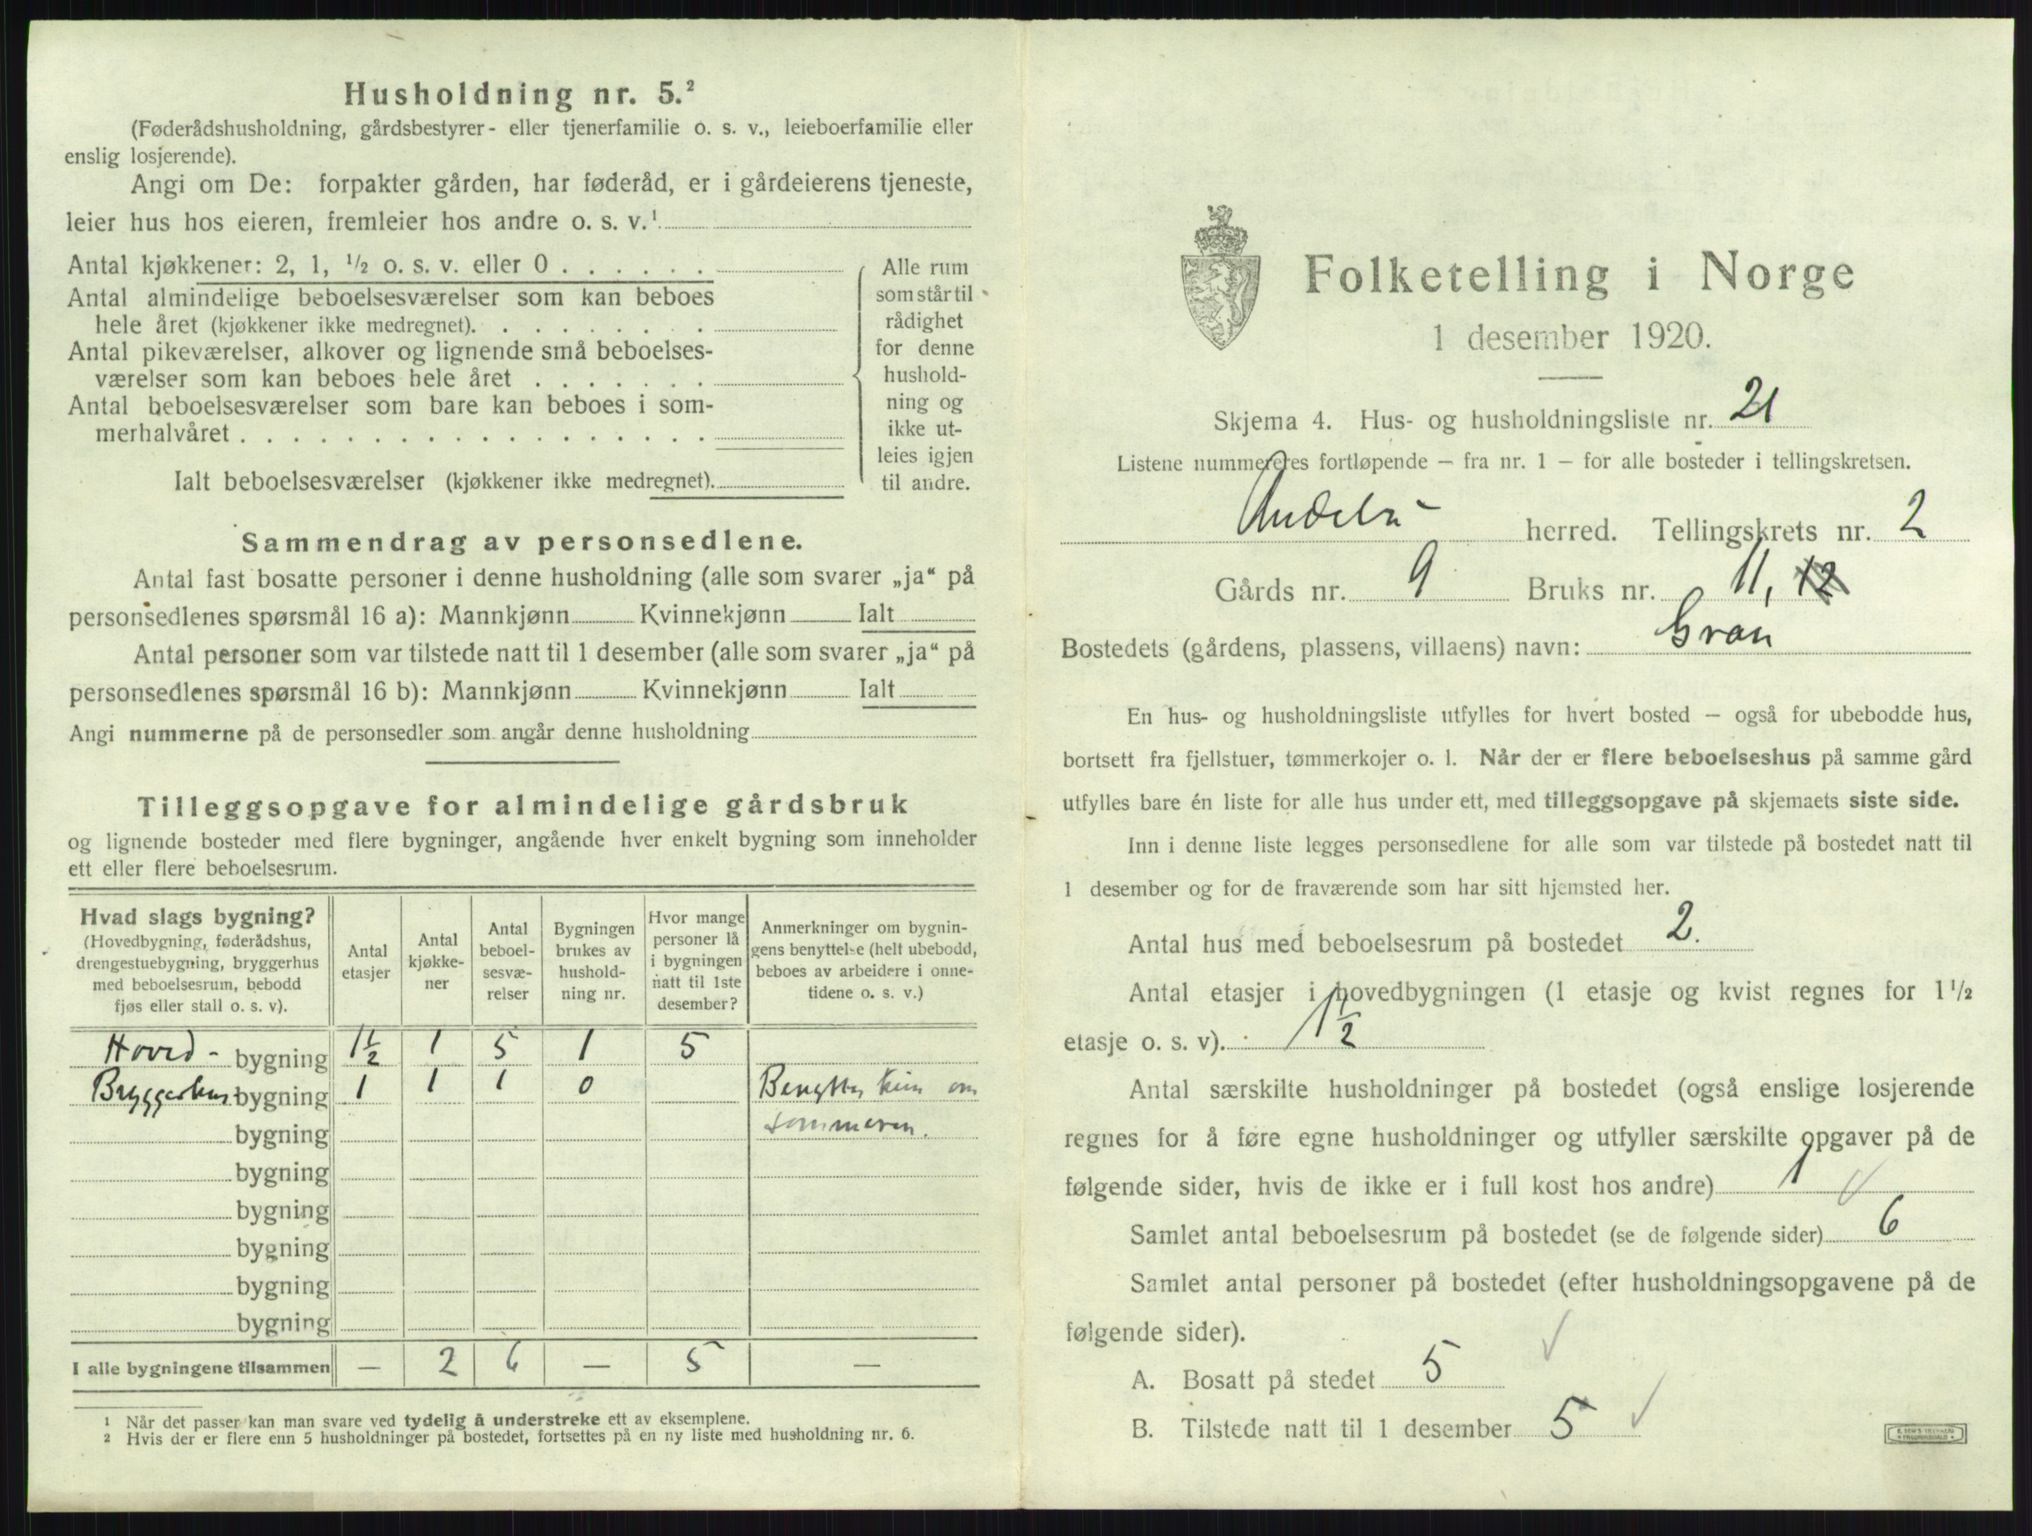 Husholdning nr. 5.²
(Føderådshusholdning, gårdsbestyrer- eller tjenerfamilie o. s. v., leieboerfamilie eller
enslig losjerende).
Angi om De: forpakter gården, har føderåd, er i gårdeierens tjeneste,
leier hus hos eieren, fremleier hos andre o. s. v.¹
Antal kjøkkener: 2, 1, ½ o. s. v. eller 0 . . . . . .
Antal almindelige beboelsesværelser som kan beboes
hele året (kjøkkener ikke medregnet). . . . . . . . .
Antal pikeværelser, alkover og lignende små beboelses-
værelser som kan beboes hele året . . . . . . .
Antal beboelsesværelser som bare kan beboes i som-
merhalvåret . . . . . . . . . . . . . . . . . .
Ialt beboelsesværelser (kjøkkener ikke medregnet).
Alle rum
som står til
rådighet
for denne
hushold-
ning og
ikke ut-
leies igjen
til andre.
Sammendrag av personsedlene.
Antal fast bosatte personer i denne husholdning (alle som svarer „ja“ på
personsedlenes spørsmål 16 a): Mannkjønn Kvinnekjønn Ialt
Antal personer som var tilstede natt til 1 desember (alle som svarer „ja“ på
personsedlenes spørsmål 16 b): Mannkjønn Kvinnekjønn Ialt
Angi nummerne på de personsedler som angår denne husholdning
Tilleggsopgave for almindelige gårdsbruk
og lignende bosteder med flere bygninger, angående hver enkelt bygning som inneholder
ett eller flere beboelsesrum.
Hvad slags bygning?
(Hovedbygning, føderådshus,
drengestuebygning, bryggerhus
med beboelsesrum, bebodd
fjøs eller stall o. s. v).
Antal
etasjer
Antal
kjøkke-
ner
Antal
beboel-
sesvæ-
relser
Bygningen
brukes av
hushold-
ning nr.
Hvor mange
personer lå
i bygningen
natt til 1ste
desember?
Anmerkninger om bygnin-
gens benyttelse (helt ubebodd,
beboes av arbeidere i onne-
tidene o. s. v.)
Hoved- bygning 1½ 1 5 1 5
Bryggerhus bygning 1 1 1 0 Benyttes kun om
bygning sommeren.
bygning
bygning
bygning
bygning
bygning
I alle bygningene tilsammen — 2 6 — 5 —
¹ Når det passer kan man svare ved tydelig å understreke ett av eksemplene.
² Hvis der er flere enn 5 husholdninger på bostedet, fortsettes på en ny liste med husholdning nr. 6.
Folketelling i Norge
1 desember 1920.
Skjema 4. Hus- og husholdningsliste nr. 21
Listene nummereres fortløpende – fra nr. 1 – for alle bosteder i tellingskretsen.
Andebu herred. Tellingskrets nr. 2
Gårds nr. 9 Bruks nr. 11, 12
Bostedets (gårdens, plassens, villaens) navn: Gran
En hus- og husholdningsliste utfylles for hvert bosted – også for ubebodde hus,
bortsett fra fjellstuer, tømmerkojer o. l. Når der er flere beboelseshus på samme gård
utfylles bare én liste for alle hus under ett, med tilleggsopgave på skjemaets siste side.
Inn i denne liste legges personsedlene for alle som var tilstede på bostedet natt til
1 desember og for de fraværende som har sitt hjemsted her.
Antal hus med beboelsesrum på bostedet 2.
Antal etasjer i hovedbygningen (1 etasje og kvist regnes for 1½
etasje o. s. v). 1½
Antal særskilte husholdninger på bostedet (også enslige losjerende
regnes for å føre egne husholdninger og utfyller særskilte opgaver på de
følgende sider, hvis de ikke er i full kost hos andre) 1
Samlet antal beboelsesrum på bostedet (se de følgende sider) 6
Samlet antal personer på bostedet (efter husholdningsopgavene på de
følgende sider).
A. Bosatt på stedet 5
B. Tilstede natt til 1 desember 5